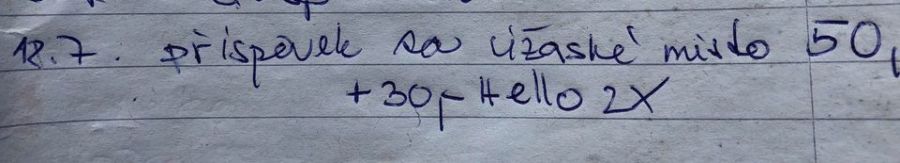 12.7. příspěvek za úžaské místo 50,
+30,- Hello 2X